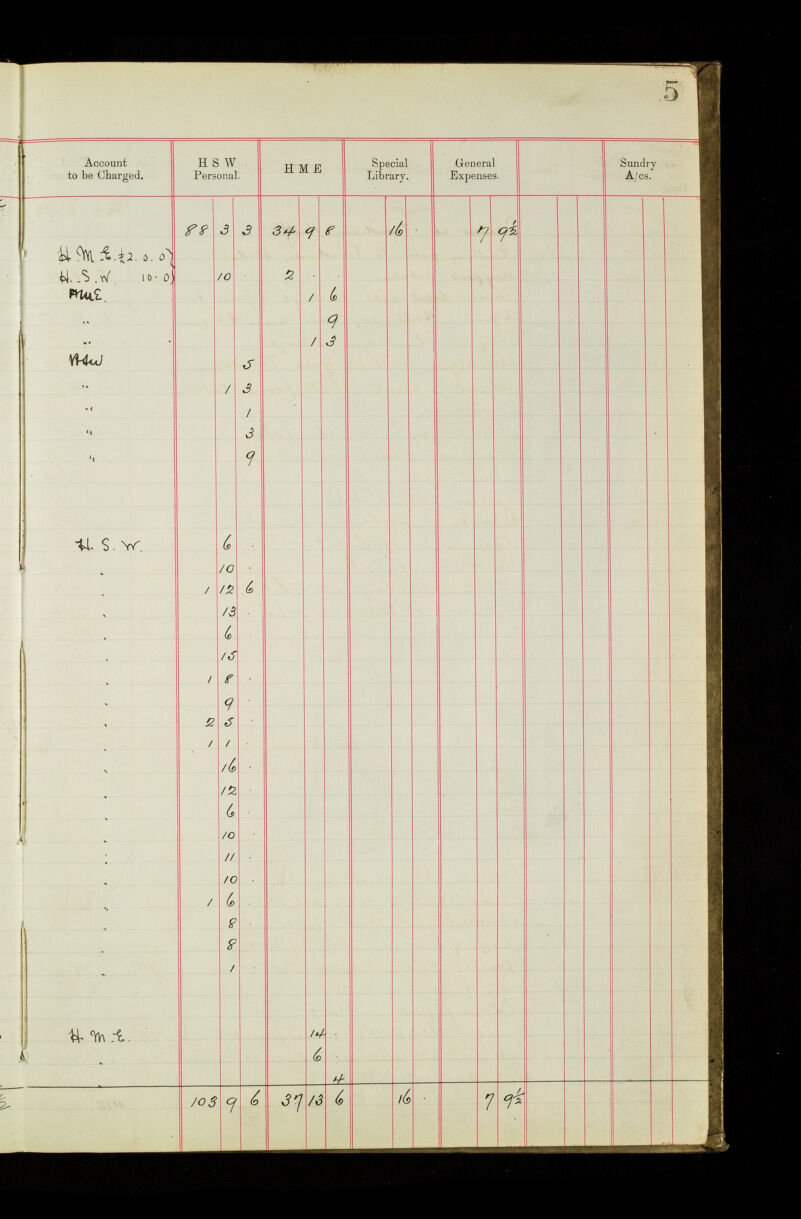 5
Account to be Charged. H S W Personal. H M E Special Library. General Expenses. Sundry A/cs.
88 3 3 34 9 8 16 · 7 9½
H. M. E. £2. 0. 0
H. S. W. 10-0 10 · 2 · ·
HME. 1 6
" 9
" 1 3
HSW 5
" 1 3
" 1
" 3
" 9
H. S. W. 6 ·
" 10 ·
" 1 12 6
" 13 ·
" 6
" 15
" 1 8 ·
" 9 ·
" 2 5 ·
" 1 1 ·
" 16 ·
" 12 ·
" 6 ·
" 10 ·
" 11 ·
" 10 ·
" 1 6 ·
" 8 ·
" 8
" 1 ·
H. M. E. 14 ·
" 6 ·
4
103 9 6 37 13 6 16 · 7 9½